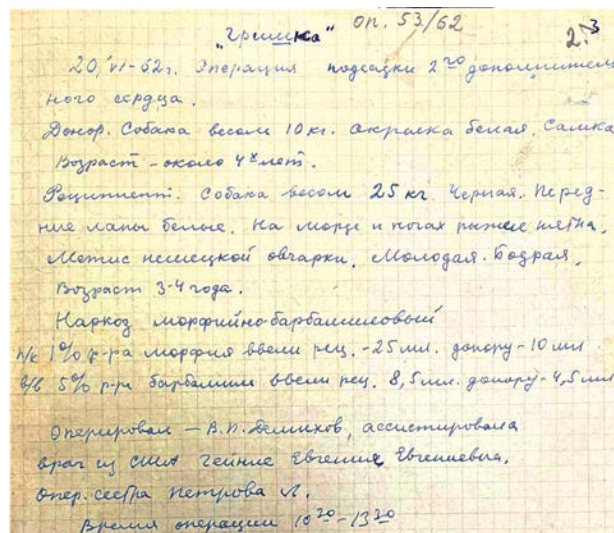 оп. 53/62
"Гришка"
2.3
20/VI-62г. Операция подсадки 2го дополнитель
ного сердца.
Донор. Собака весом 10 кг. Окраска белая. Самка
Возраст - около 4х лет.
Реципиент. Собака весом 25 кг. Черная. Перед-
ние лапы белые. На морде и ногах рыжие пятна.
Метис немецкой овчарки. Молодая. Бодрая.
Возраст 3-4 года.
Наркоз морфийно-барбамиловый
п/к 1% р-ра морфия ввели рец. - 25 мл. донору - 10 мл
в/в 5% р-р барбамил ввели рец. 8,5 мл. донору - 4,5 мл
Оперировал — В.П. Демихов, ассистировала
врач из США Евгения Евгениевна.
Опер. сестра Петрова Л.
Время операции 10 30 - 13 30